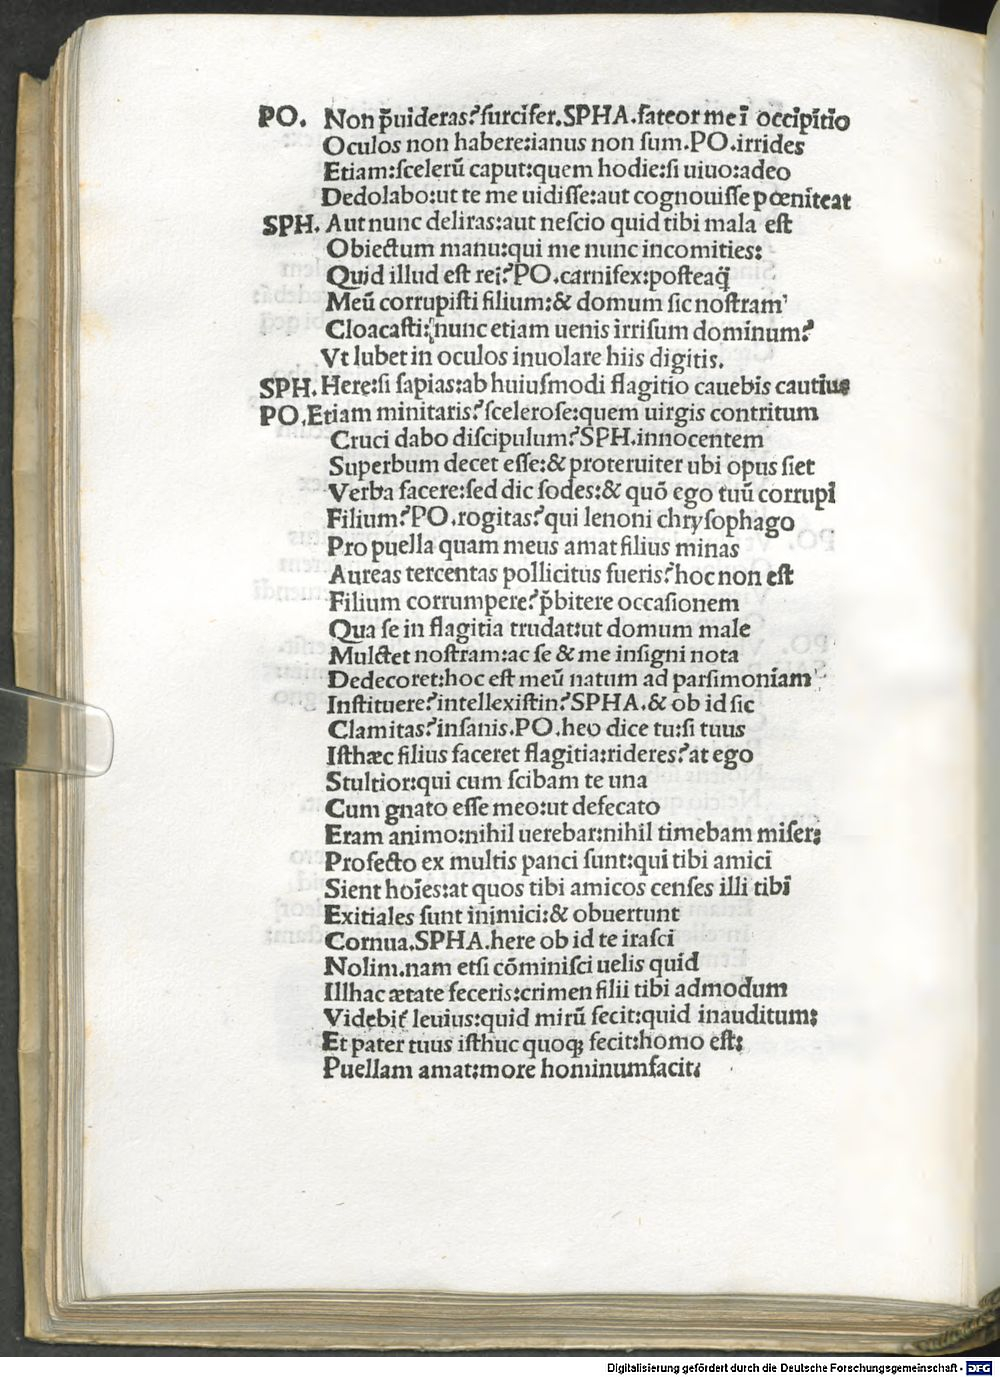 PO. Non p̄uideras?furcifer.SPHA.fateor me ī occipitio
Oculos non habere:ianus non sum.PO.irrides
Etiam:scelerū caput:quem hodie:si uiuo:adeo
Dedolabo:ut te me uidisse:aut cognouisse pœniteat
SPH. Aut nunc deliras:aut nescio quid tibi mala est
Obiectum manu:qui me nunc incomities:
Quid illud est rei?PO.carnifex:posteaq̄
Meū corrupisti filium:& domum sic nostram
Cloacasti:nunc etiam uenis irrisum dominum?
Vt lubet in oculos inuolare hiis digitis.
SPH. Here:si sapias:ab huiusmodi flagitio cauebis cautius
PO. Etiam minitaris?scelerose:quem uirgis contritum
Cruci dabo discipulum?SPH.innocentem
Superbum decet esse:& proteruiter ubi opus siet
Verba facere:sed dic sodes:& quō ego tuū corrupi
Filium?PO.rogitas?qui lenoni chrysophago
Pro puella quam meus amat filius minas
Aureas tercentas pollicitus fueris?hoc non est
Filium corrumpere?p̄bitere occasionem
Qua se in flagitia trudat:ut domum male
Mulctet nostram:ac se & me insigni nota
Dedecoret:hoc est meū natum ad parsimoniam
Instituere?intellexistin?SPHA.& ob id sic
Clamitas?insanis.PO.heo dice tu:si tuus
Isthæc filius faceret flagitia:rideres?at ego
Stultior:qui cum scibam te una
Cum gnato esse meo:ut defecato
Eram animo:nihil uerebar:nihil timebam miser:
Profecto ex multis panci sunt:qui tibi amici
Sient hoīes:at quos tibi amicos censes illi tibi
Exitiales sunt inimici:& obuertunt
Cornua.SPHA.here ob id te irasci
Nolim.nam etsi cōminisci uelis quid
Illhac ætate feceris:crimen filii tibi admodum
Videbit̄ leuius:quid mirū fecit:quid inauditum:
Et pater tuus isthuc quoq; fecit:homo est:
Puellam amat:more hominum facit:
Digitalisierung gefördert durch die Deutsche Forschungsgemeinschaft - DFG